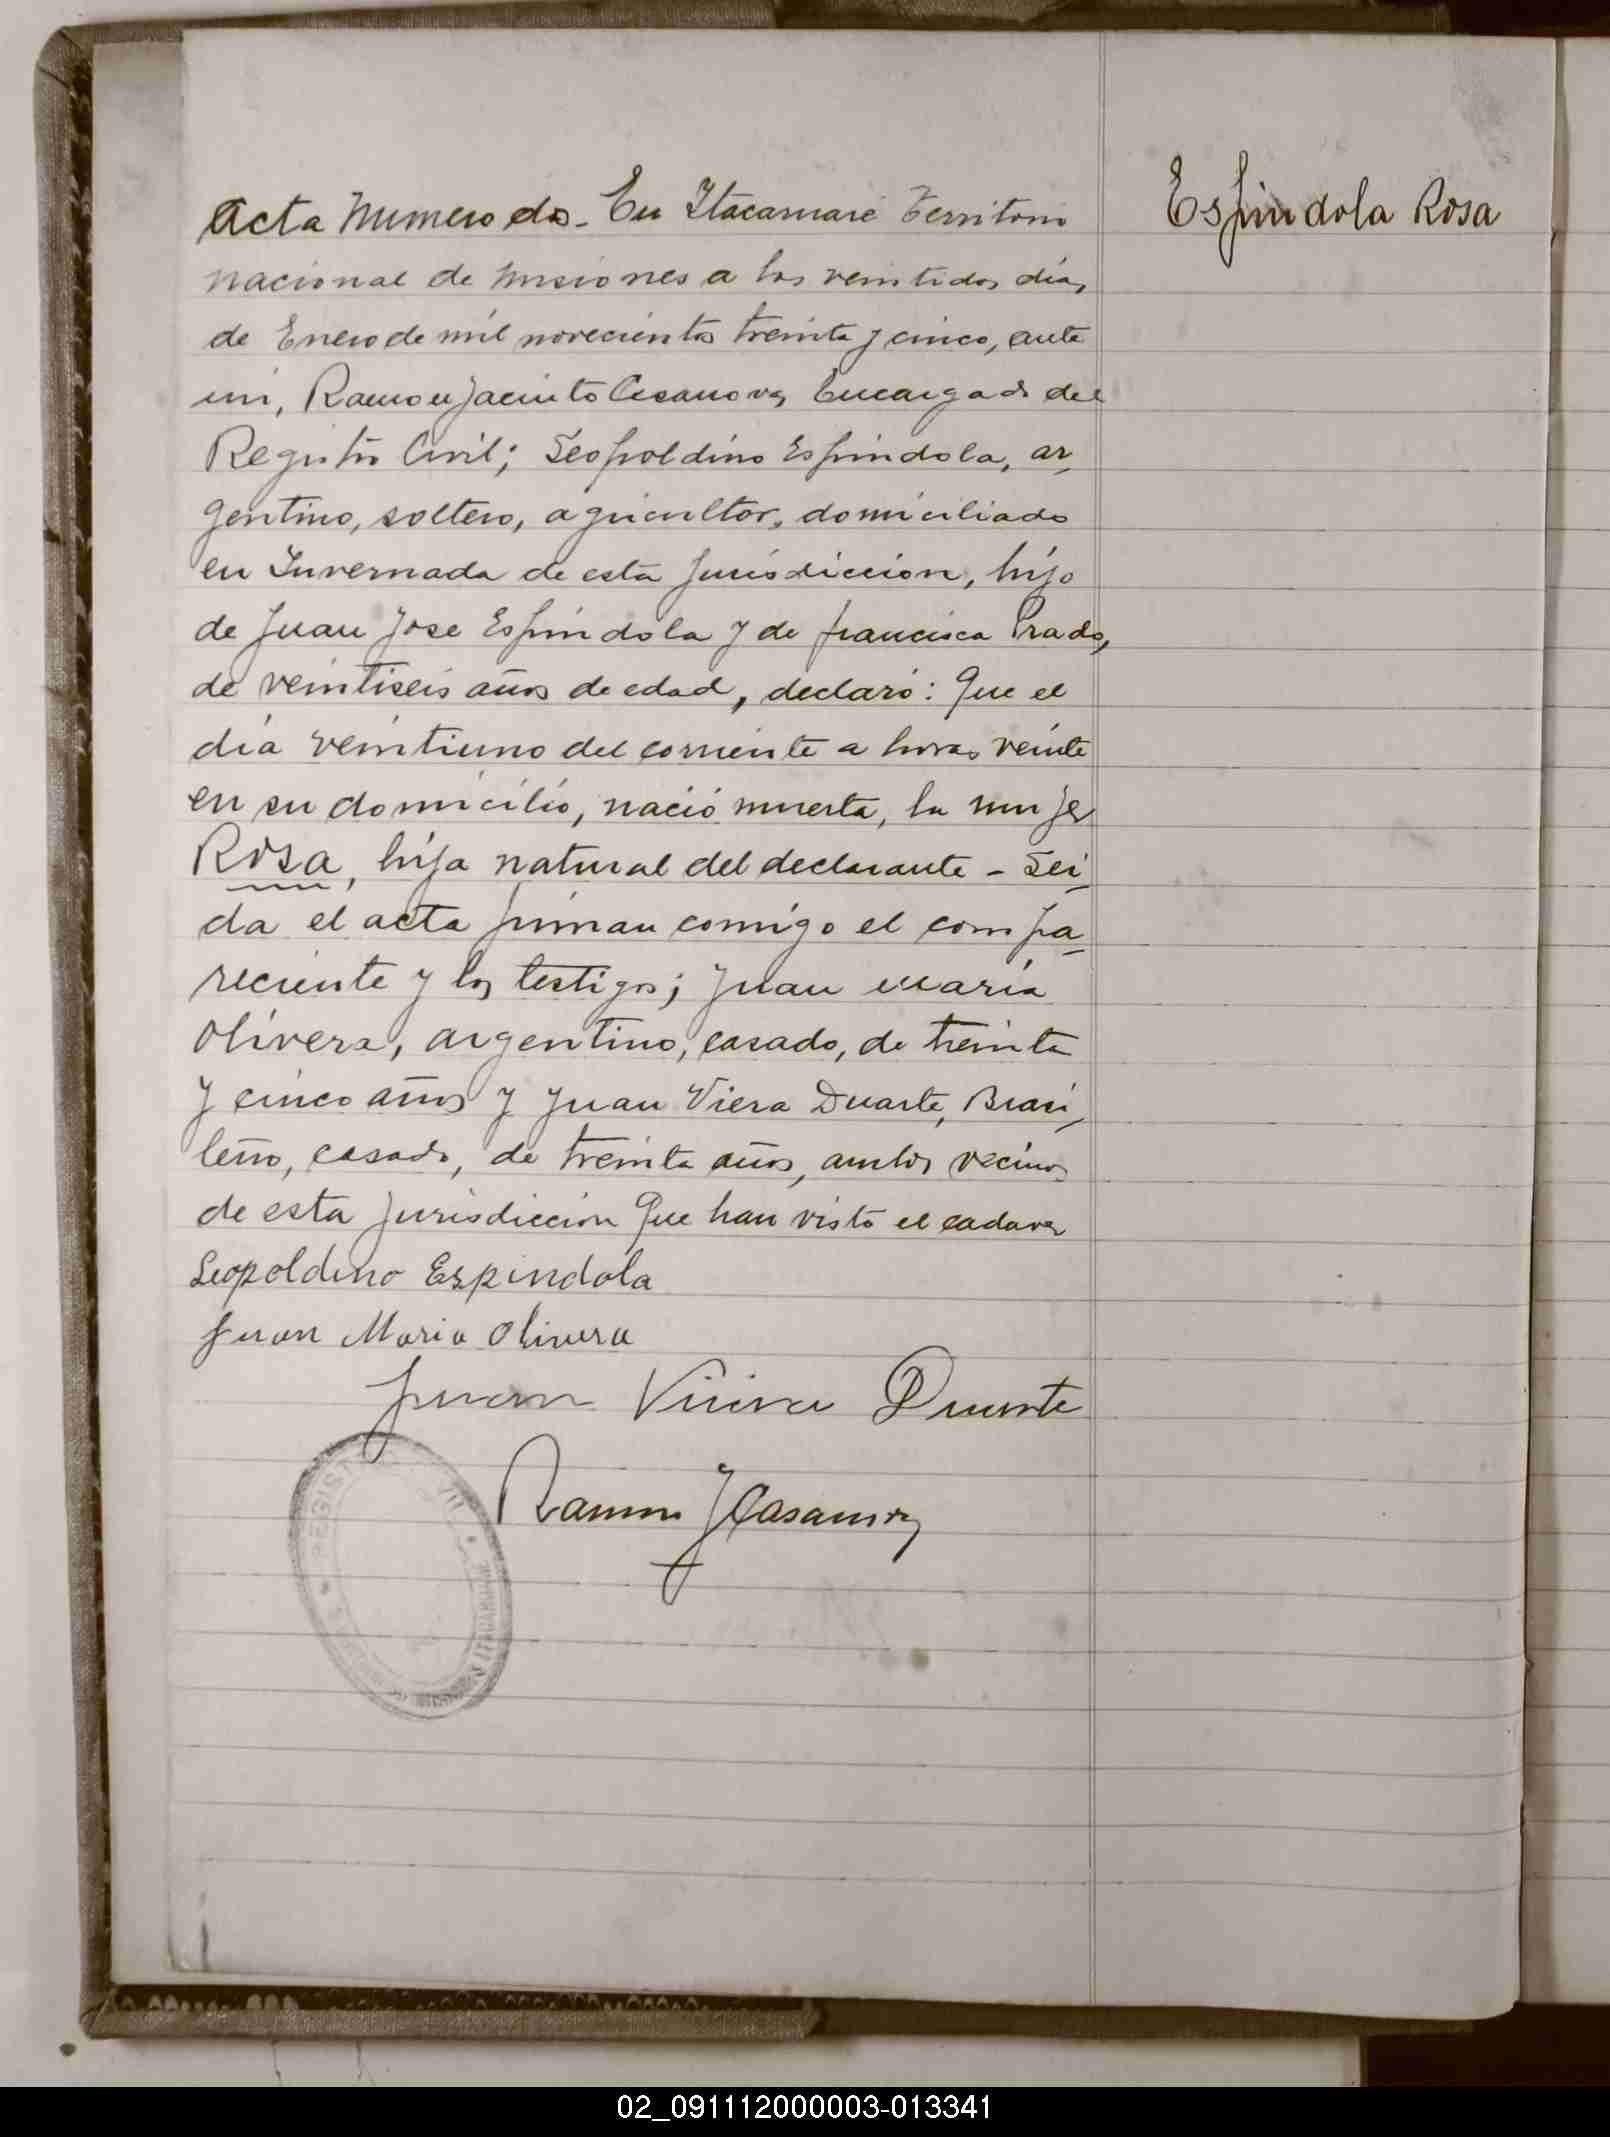 Espindola Rosa
Acta Numero dos. En Itacaruaré Territorio
nacional de Misiones a los veintidos días
de Enero de mil novecientos treinta y cinco, ante
mi, Ramon Jacinto Casanova, Encargado del
Registro Civil; Leopoldino Espindola, ar-
gentino, soltero, agricultor, domiciliado
en Invernada de esta Jurisdiccion, hijo
de Juan Jose Espindola y de francisca Prado,
de veintiseis años de edad, declaró: Que el
día veintiuno del corriente a horas veinte
en su domicilio, nació muerta, la mujer
Rosa, hija natural del declarante - Lei-
da el acta firman comigo el compa-
reciente y los testigos; Juan María
Olivera, argentino, casado, de treinta
y cinco años y Juan Viera Duarte, Brasi-
leño, casado, de treinta años, ambos vecinos
de esta Jurisdiccion Que han visto el cadaver
Leopoldino Espindola
Juan Maria Olivera
Juan Vieira Duarte
Ramon J Casanova
REGISTRO CIVIL
ITACARUARE
02_091112000003-013341